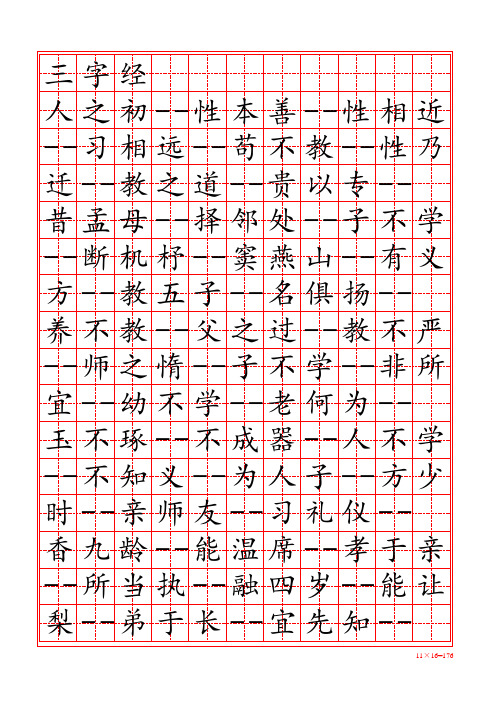 三字经
人之初--性本善--性相近
--习相远--苟不教--性乃
迁--教之道--贵以专--
昔孟母--择邻处--子不学
--断机杼--窦燕山--有义
方--教五子--名俱扬--
养不教--父之过--教不严
--师之惰--子不学--非所
宜--幼不学--老何为--
玉不琢--不成器--人不学
--不知义--为人子--方少
时--亲师友--习礼仪--
香九龄--能温席--孝于亲
--所当执--融四岁--能让
梨--弟于长--宜先知--
11×16=176